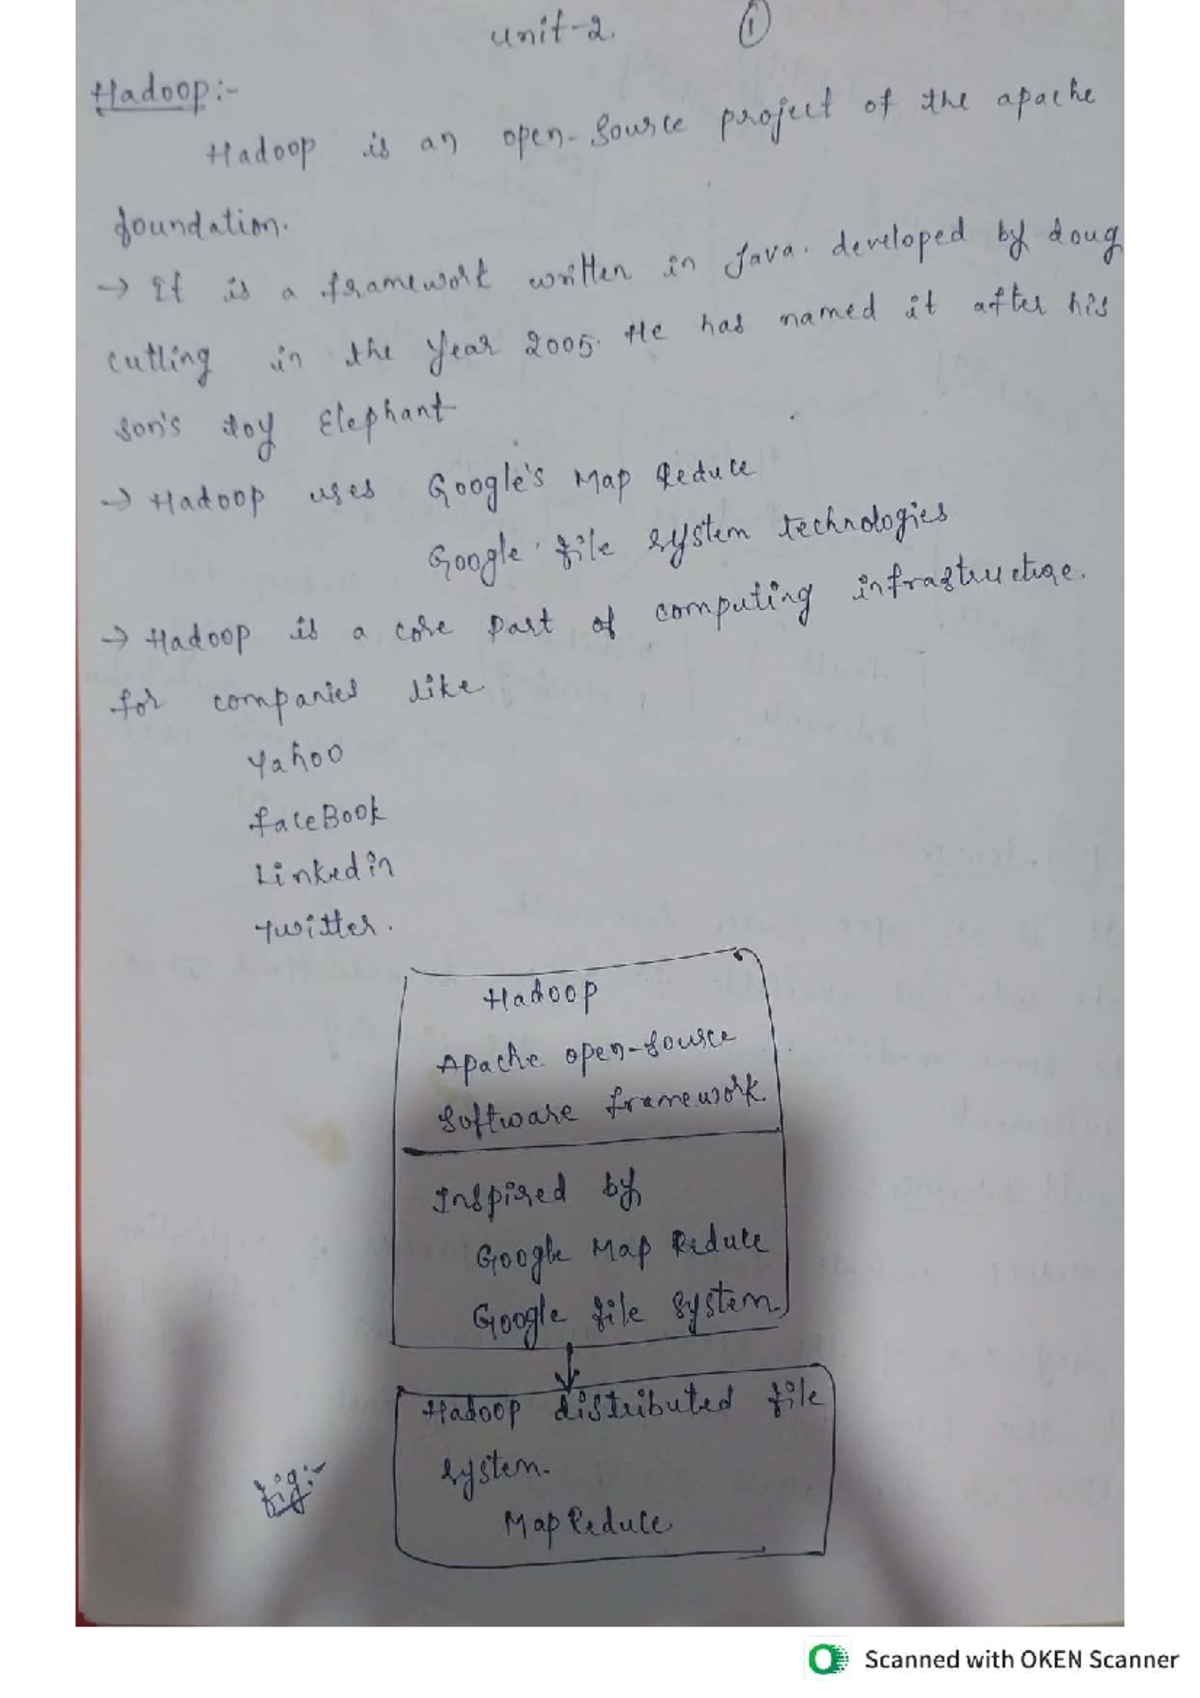 Unit-2. 1
Hadoop:-
Hadoop is an open-source project of the apache
foundation.
→ It is a framework written in Java. developed by doug
cutting in the Year 2005. He has named it after his
son's toy Elephant
→ Hadoop uses Google's Map Reduce
Google file system technologies
→ Hadoop is a core Part of computing infrastructure.
for companies like
Yahoo
faceBook
Linkedin
twitter.
Hadoop
Apache open-source
software framework.
Inspired by
Google Map Reduce
Google file system.
Hadoop distributed file
system.
Map Reduce
fig:-
Scanned with OKEN Scanner